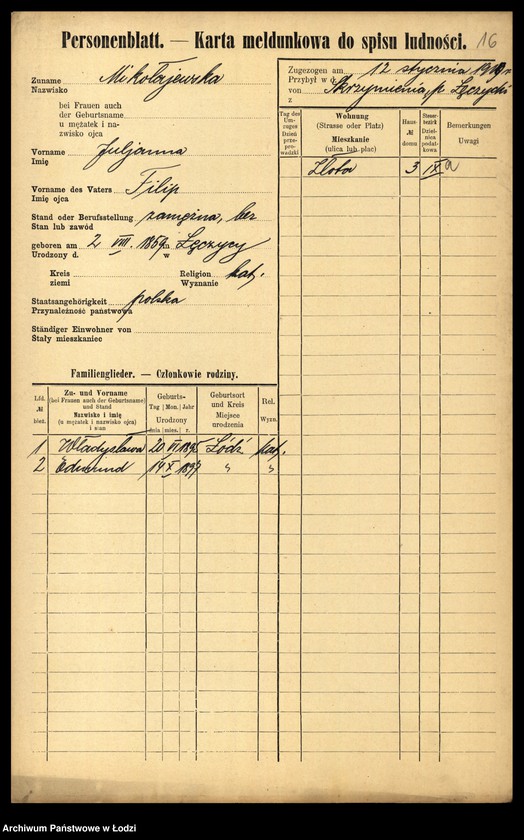 Personenblatt. — Karta meldunkowa do spisu ludności. 16
Zuname Mikołajewska
Nazwisko
bei Frauen auch
der Geburtsname
u mężatek i na-
zwisko ojca
Vorname Juljanna
Imię
Vorname des Vaters Filip
Imię ojca
Stand oder Berufsstellung zamężna, bez
Stan lub zawód
geboren am 2 VIII 1859 in Łęczycy
Urodzony d. w
Kreis Religion kat.
ziemi Wyznanie
Staatsangehörigkeit polska
Przynależność państwowa
Ständiger Einwohner von
Stały mieszkaniec
Zugezogen am 12 stycznia
Przybył w d.
von p. Łęczycki
z
Tag des Um-zuges
Dzień prze-pro-wadzki
Wohnung
(Strasse oder Platz)
Mieszkanie
(ulica lub plac)
Haus-
№
domu
Steuer-bezirk
Dziel-nica podat-kowa
Bemerkungen
Uwagi
Złota 3 IX a
Familienglieder. — Członkowie rodziny.
Lfd.
№
bież.
Zu- und Vorname
(bei Frauen auch der Geburtsname)
und Stand
Nazwisko i imię
(u mężatek i nazwisko ojca)
i stan
Geburts-
Tag Mon. Jahr
Urodzony
dnia mies. r.
Geburtsort
und Kreis
Miejsce
urodzenia
Rel.
Wyzn.
1 Władysława 20 VI Łódź kat.
2 Edmund 14 X 1897 " "
Archiwum Państwowe w Łodzi